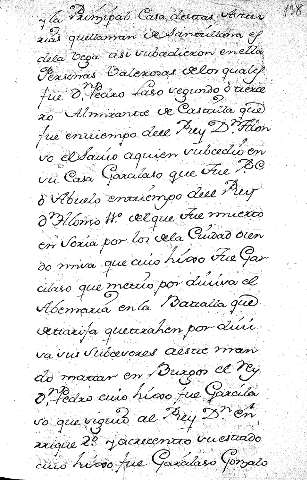 198
y la Principal Casa destas Astu
rias que llaman de Santillana es
dela Vega así subcedieron en ella
Personas Valerosas delos quales
fue Dⁿ Pedro Laso segundo o terce
ro Almirante de Castilla que
fue en tiempo del Rey Dⁿ Alon
so el Savio a quien subcedió en
su Casa Garcilaso que fue
Abuelo en tiempo del Rey
Dⁿ Alonso del que fue muerto
en Soria por los dela Ciudad cien
do cuio hixo fue Gar
cilaso que metió por divisa el
Abemaría en la Batalla que
de tarifa que trahen por divi
sa sus subcesores a este man
do matar en Burgos el Rey
Dⁿ Pedro cuio hixo fue Garcila
so que siguió al Rey Dⁿ En
rrique 2º y acrecentó su estado
cuio hixo fue Garcilaso Gonzalo